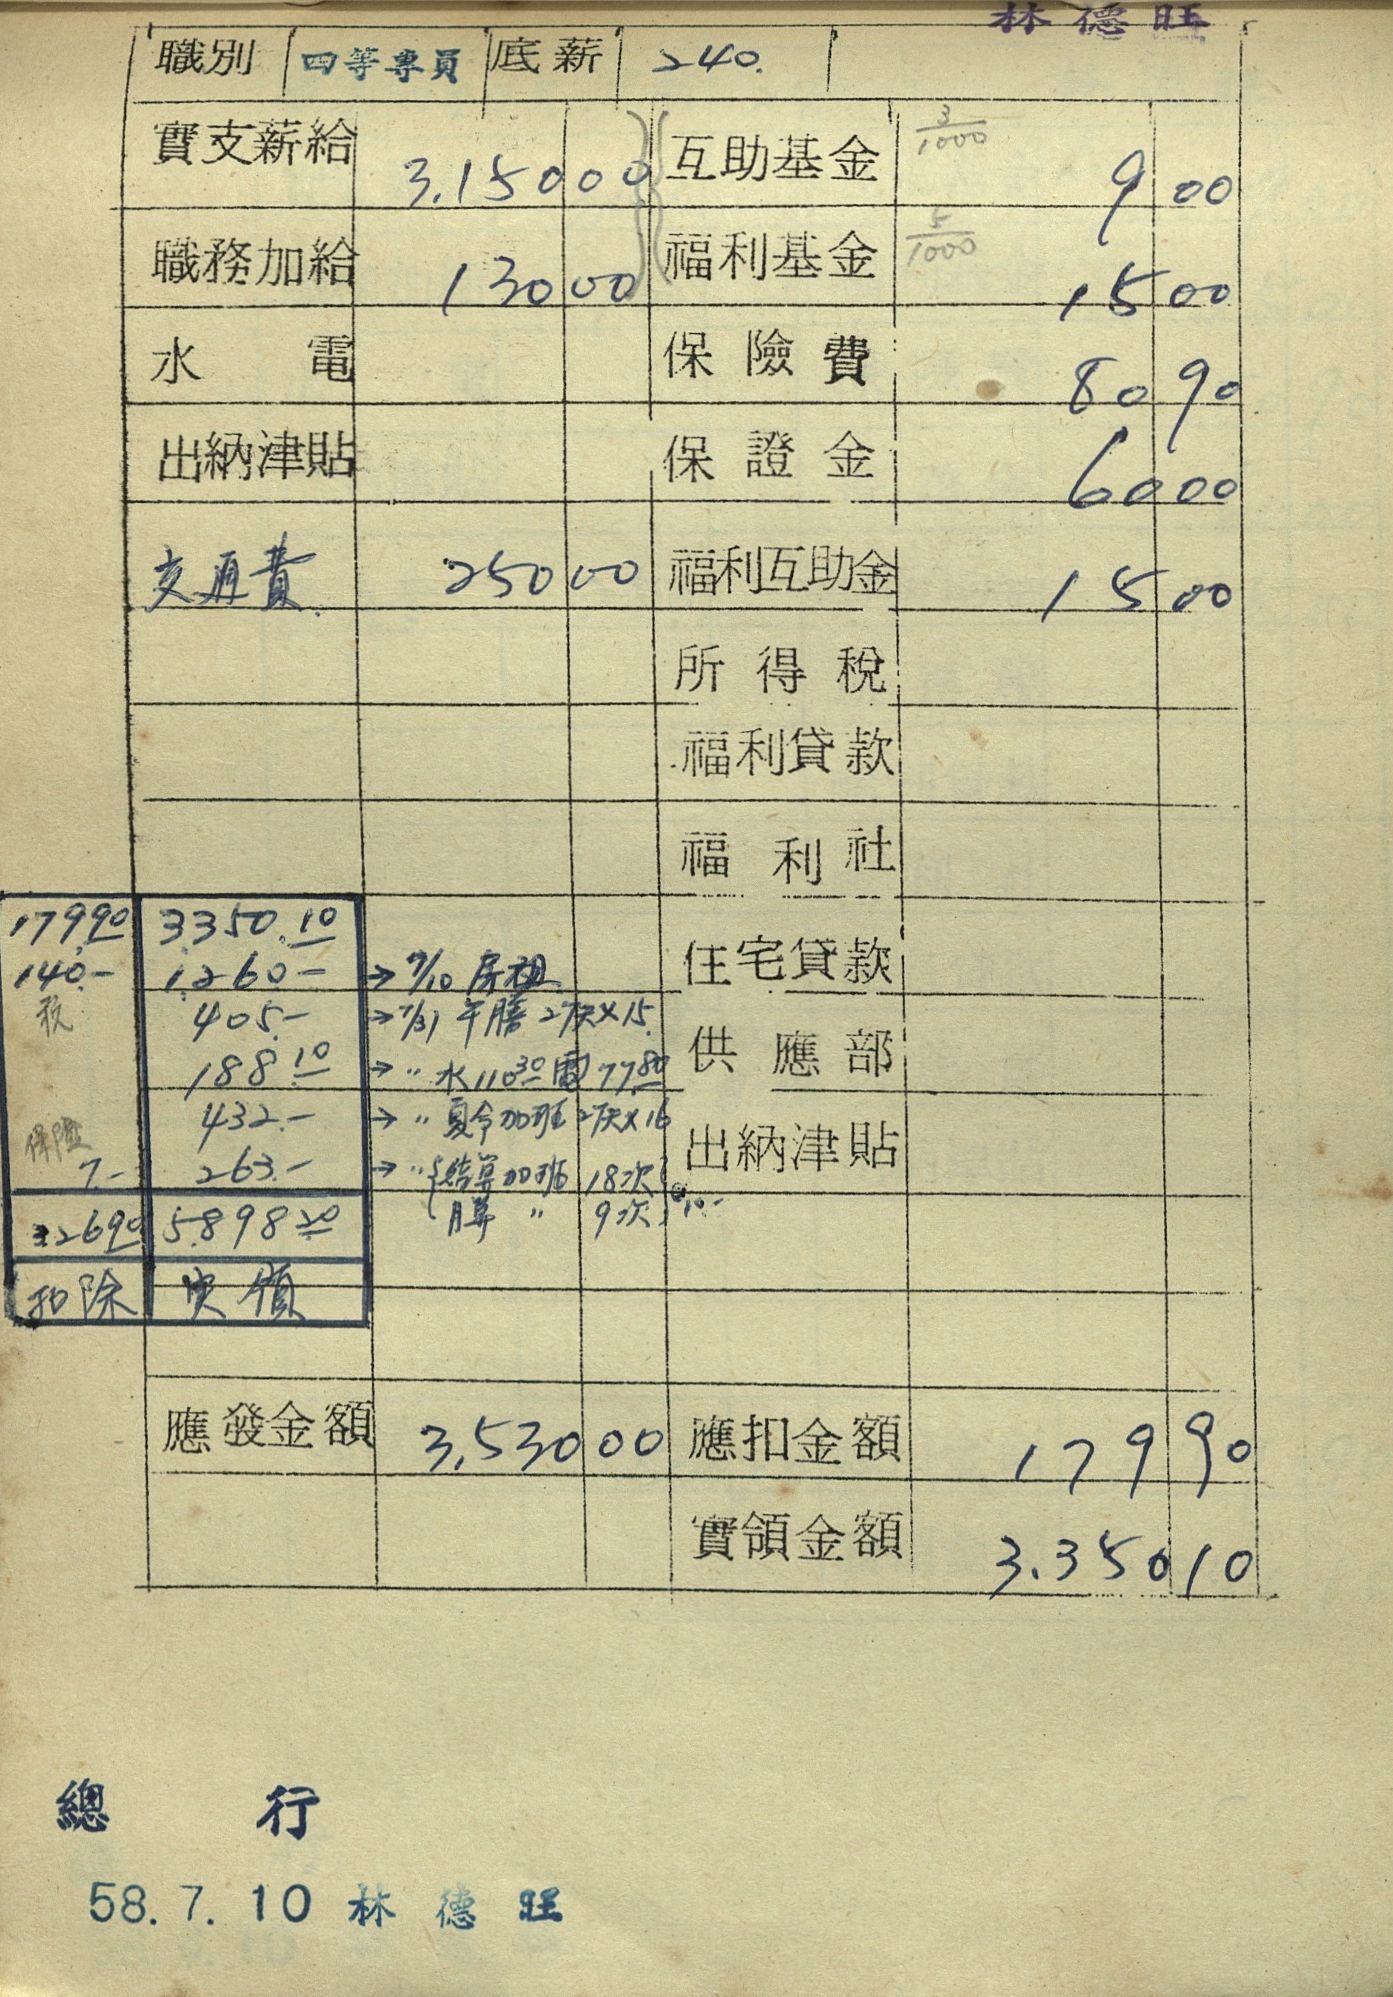 林德旺
職別 四等專員 底薪 240.
實支薪給 3,150 00 互助基金 3/1000 9 00
職務加給 130 00 福利基金 5/1000 15 00
水電 保險費 80 90
出納津貼 保證金 60 00
交通費 250 00 福利互助金 15 00
所得稅
福利貸款
福利社
179.90 3350.10
住宅貸款
140.- 1,260- → 7/10 房租
稅 405.- → 7/31 午膳 27天×15.
供應部
188.10 → " 水110.30 電77.80
432.- → " 夏令加班 27天×16
出納津貼
保險 7.- 263.- → " 結算加班 18次
月算 " 9次 @10.-
326.90 5.898.20
扣除 实領
應發金額 3,530 00 應扣金額 179 90
實領金額 3.350 10
總行
58.7.10 林德旺